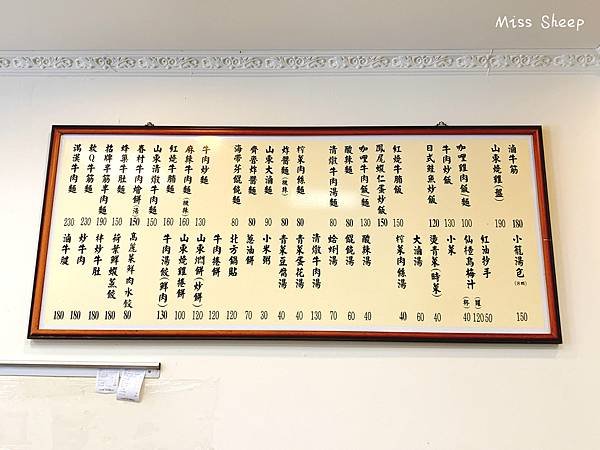 Miss Sheep
滷牛筋 180
山東燒雞(盤) 190
咖哩雞肉飯(麵) 100
牛肉炒飯 130
日式鮭魚炒飯 120
紅燒牛腩飯 150
鳳尾蝦仁蛋炒飯 150
咖哩牛肉飯(麵)
酸辣麵 80
清燉牛肉湯麵 80
榨菜肉絲麵 80
炸醬麵(微辣) 80
山東大滷麵 90
齊魯炸醬麵 80
海帶芽餛飩麵 80
牛肉炒麵 130
麻辣牛肉麵(微辣) 160
紅燒牛腩麵 160
山東清燉牛肉麵 150
眷村牛肉燴餅(湯) 150
蜂巢牛肚麵 150
招牌半筋半肉麵 190
軟Q牛筋麵 230
滿漢牛肉麵 230
小籠湯包 150
紅油抄手
仙楂烏梅汁(杯)(罐) 40 120 50
小菜 40
燙青菜(時菜) 40
大滷湯 60
榨菜肉絲湯 40
酸辣湯 40
餛飩湯 60
蛤蜊湯 70
清燉牛肉湯 130
青菜蛋花湯 40
青菜豆腐湯 40
小米粥 30
蔥油餅 70
北方鍋貼 120
牛肉捲餅 120
山東燜餅(炒餅) 120
山東燒雞捲餅 100
牛肉湯餃(鮮肉) 130
高麗菜鮮肉水餃 80
荷葉鮮蝦蒸餃 180
拌炒牛肚 180
炒牛肉 180
滷牛腱 180